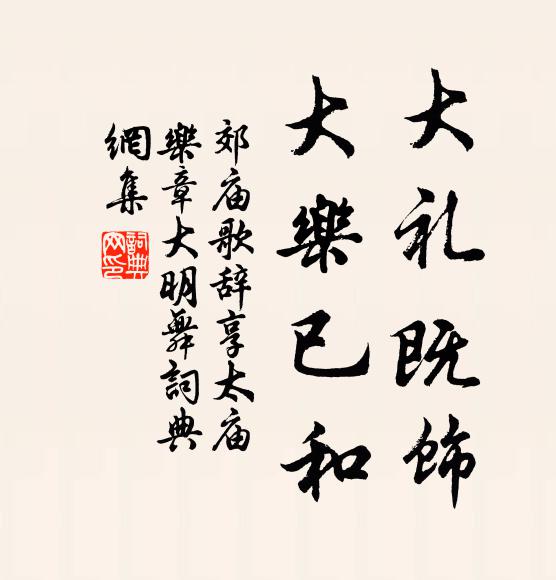 大礼既饰
大樂已和
郊庙歌辞享太庙
樂章大明舞詞典
網集
詞典
网印